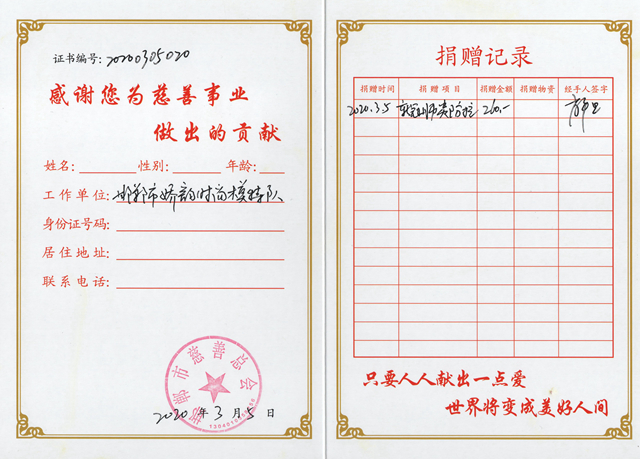 证书编号: 20200305020
感谢您为慈善事业
做出的贡献
姓名: 性别: 年龄:
工作单位: 邯郸市娇韵时尚模特队
身份证号码:
居住地址:
联系电话:
邯郸市慈善总会
2020 年 3 月 5 日
捐赠记录
捐赠时间 捐赠项目 捐赠金额 捐赠物资 经手人签字
2020.3.5 新冠肺炎防控 260.-
只要人人献出一点爱
世界将变成美好人间